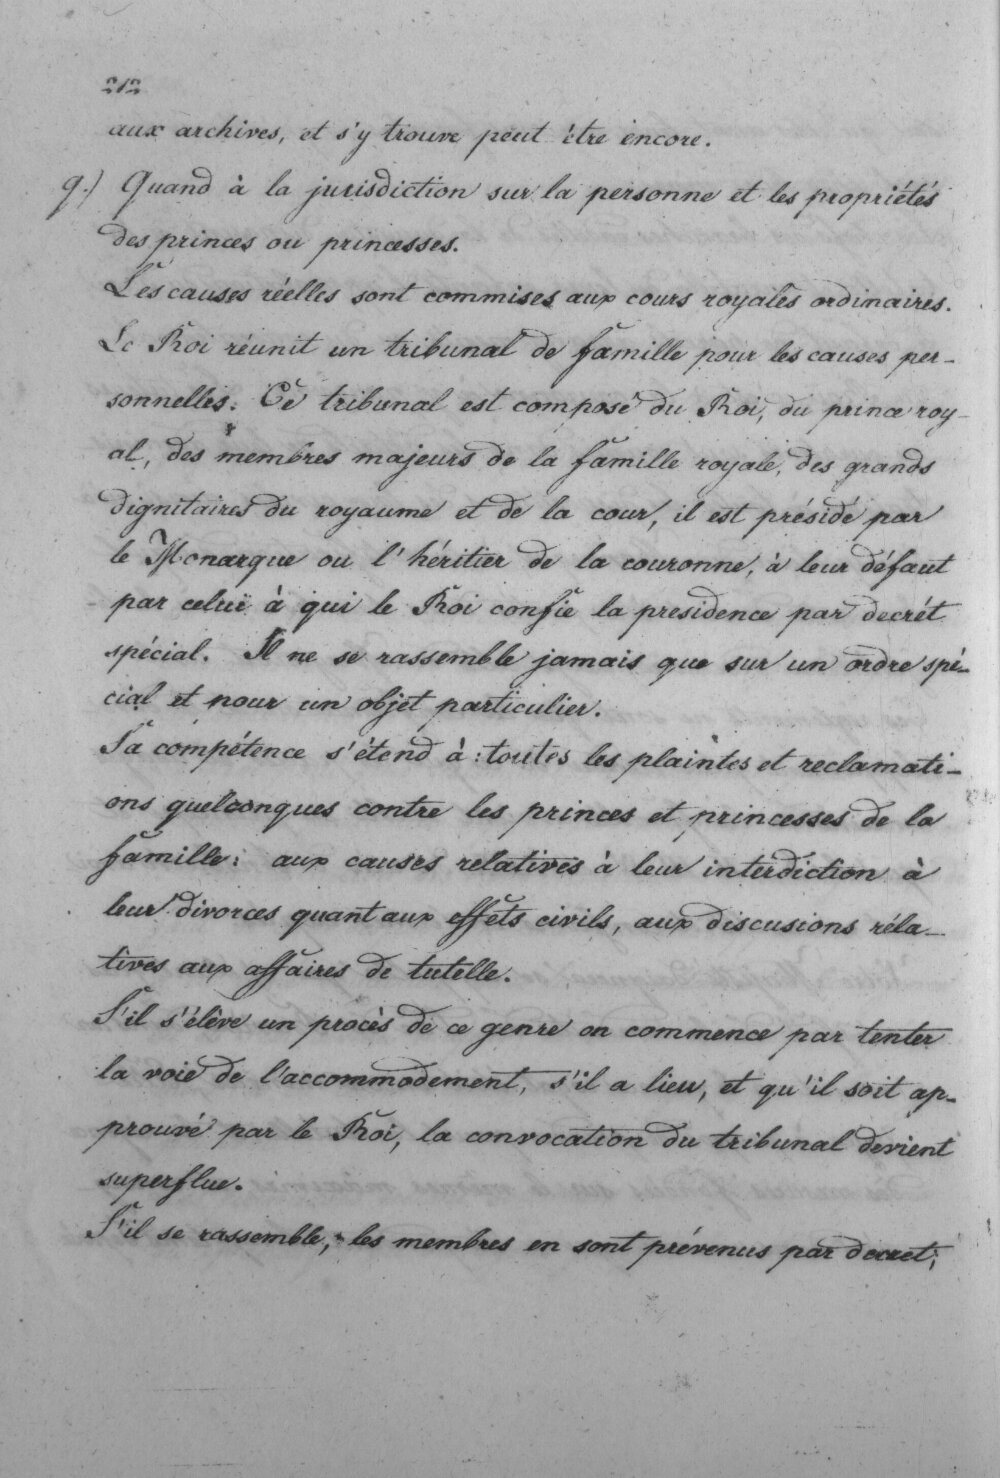 212
aux archives, et s'y trouve peut être encore.
q.) Quand à la jurisdiction sur la personne et les propriétés
des princes ou princesses.
Les causes réelles sont commises aux cours royales ordinaires.
Le Roi réunit un tribunal de famille pour les causes per-
sonnelles. Ce tribunal est composé du Roi, du prince roy-
al, des membres majeurs de la famille royale, des grands
dignitaires du royaume et de la cour, il est présidé par
le Monarque ou l'héritier de la couronne, à leur défaut
par celui à qui le Roi confie la presidence par decrét
spécial. Il ne se rassemble jamais que sur un ordre spé-
cial et pour un objet particulier.
Sa compétence s'étend à: toutes les plaintes et reclamati-
ons quelconques contre les princes et princesses de la
famille: aux causes relatives à leur interdiction à
leur divorces quant aux effets civils, aux discusions réla-
tives aux affaires de tutelle.
S'il s'élève un procès de ce genre on commence par tenter
la voie de l'accommodement, s'il a lieu, et qu'il soit ap-
prouvé par le Roi, la convocation du tribunal devient
superflue.
S'il se rassemble, les membres en sont prévenus par decret;